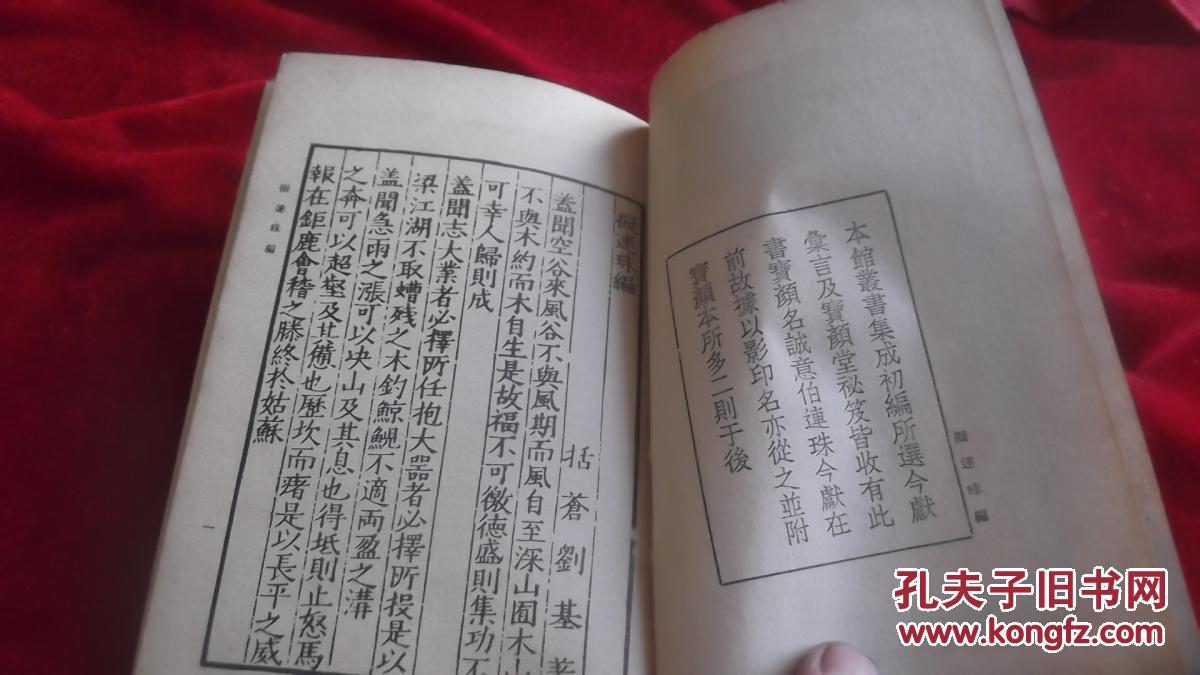 本館叢書集成初編所選今獻
彙言及寶顏堂祕笈皆收有此
書寶顏名誠意伯連珠今獻在
前故據以影印名亦從之並附
寶顏本所多二則于後
擬連珠編
擬連珠編
括蒼劉基著
蓋聞空谷來風谷不與風期而風自至深山囿木
不與木約而木自生是故福不可徼德盛則集功不
可幸人歸則成
蓋聞志大業者必擇所任抱大器者必擇所投是以
梁江湖不取螬残之木釣鯨鯢不適両盈之溝
盖聞急雨之漲可以决山及其息也得坻則止怒馬
之奔可以超壑及其憊也歴坎而瘏是以長平之威
報在鉅鹿會稽之勝終於姑蘇
擬連珠編
一
孔夫子旧书网
www.kongfz.com